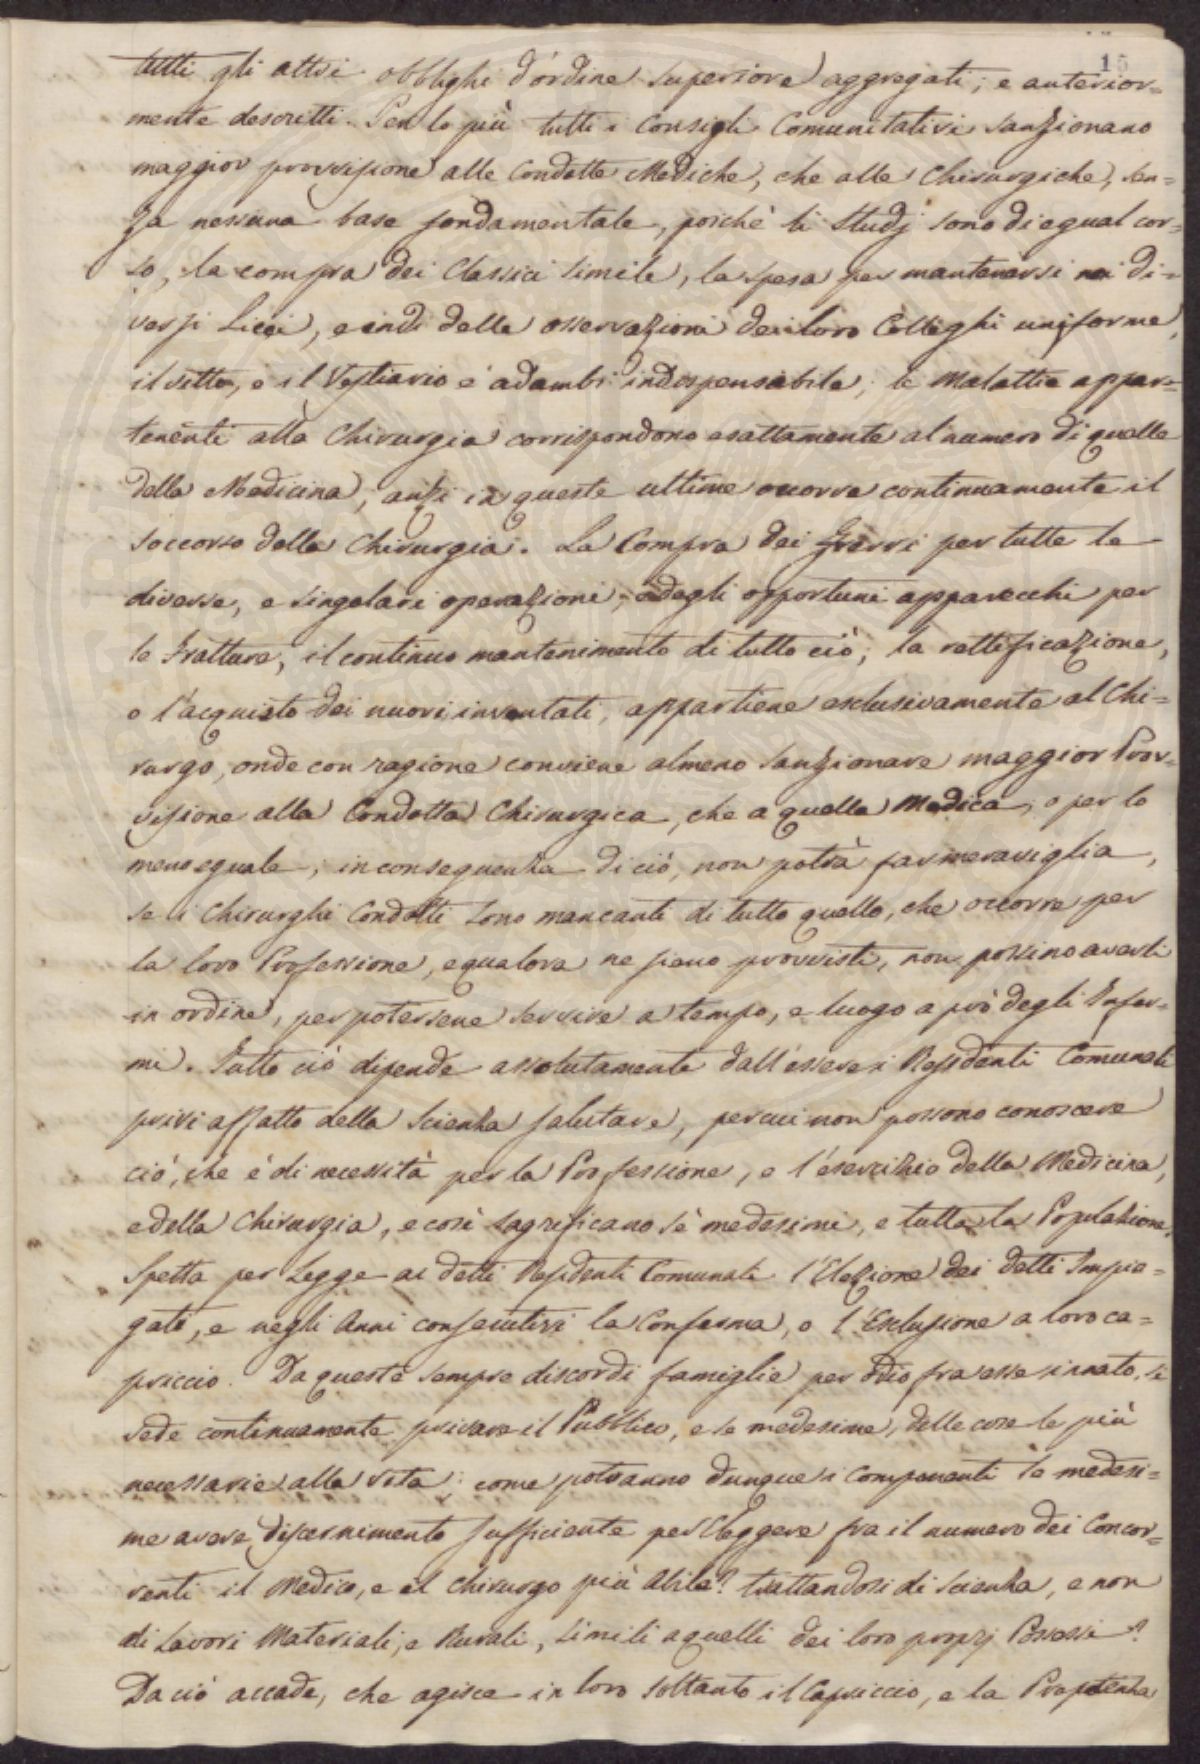 15
tutti gli altri obblighi d'ordine superiore aggregati, e anterior=
mente descritti. Per lo più tutti i Consigli Comunitativi sanzionano
maggior provvisione alle Condotte Mediche, che alle Chirurgiche, sen=
za nessuna base fondamentale, poichè li Studj sono di egual cor=
so, la compra dei Classici simile, la spesa per mantenersi nei di=
versi Licei, e indi delle osservazioni dei loro Colleghi uniforme,
il vitto, e il Vestiario è ad ambi indispensabile; le Malattie appar=
tenenti alla Chirurgia corrispondono esattamente al numero di quelle
della Medicina, anzi in queste ultime occorre continuamente il
soccorso della Chirurgia. La Compra dei Ferri per tutte le
diverse, e singolari operazioni, e degli opportuni apparecchi per
le Fratture, il continuo mantenimento di tutto ciò, la rettificazione,
o l'acquisto dei nuovi inventati, appartiene esclusivamente al Chi=
rurgo, onde con ragione conviene almeno sanzionare maggior Prov=
visione alla Condotta Chirurgica, che a quella Medica, o per lo
meno eguale; in conseguenza di ciò, non potrà far meraviglia,
se i Chirurghi Condotti sono mancanti di tutto quello, che occorre per
la loro Professione, e qualora ne sieno provvisti, non possino averli
in ordine, per potersene servire a tempo, e luogo a prò degli Infer=
mi. Tutto ciò dipende assolutamente dall'essere i Residenti Comunali
privi affatto della Scienza salutare, per cui non possono conoscere
ciò, che è di necessità per la Professione, e l'esercizio della Medicina,
e della Chirurgia, e così sagrificano sè medesimi, e tutta la Popolazione.
Spetta per Legge ai detti Residenti Comunali l'Elezione dei detti Impie=
gati, e negli Anni consecutivi la Conferma, o l'Esclusione a loro ca=
priccio. Da queste sempre discordi famiglie per odio fra esse innato, si
vede continuamente privare il Pubblico, e se medesime, delle cose le più
necessarie alla vita; come potranno dunque i Componenti le medesi=
me avere discernimento sufficiente per Eleggere fra il numero dei Concor=
renti il Medico, e il Chirurgo più Abile? trattandosi di Scienza, e non
di Lavori Materiali, e Rurali, simili a quelli dei loro proprj Possessi?
Da ciò accade, che agisce in loro soltanto il Capriccio, e la Prepotenza